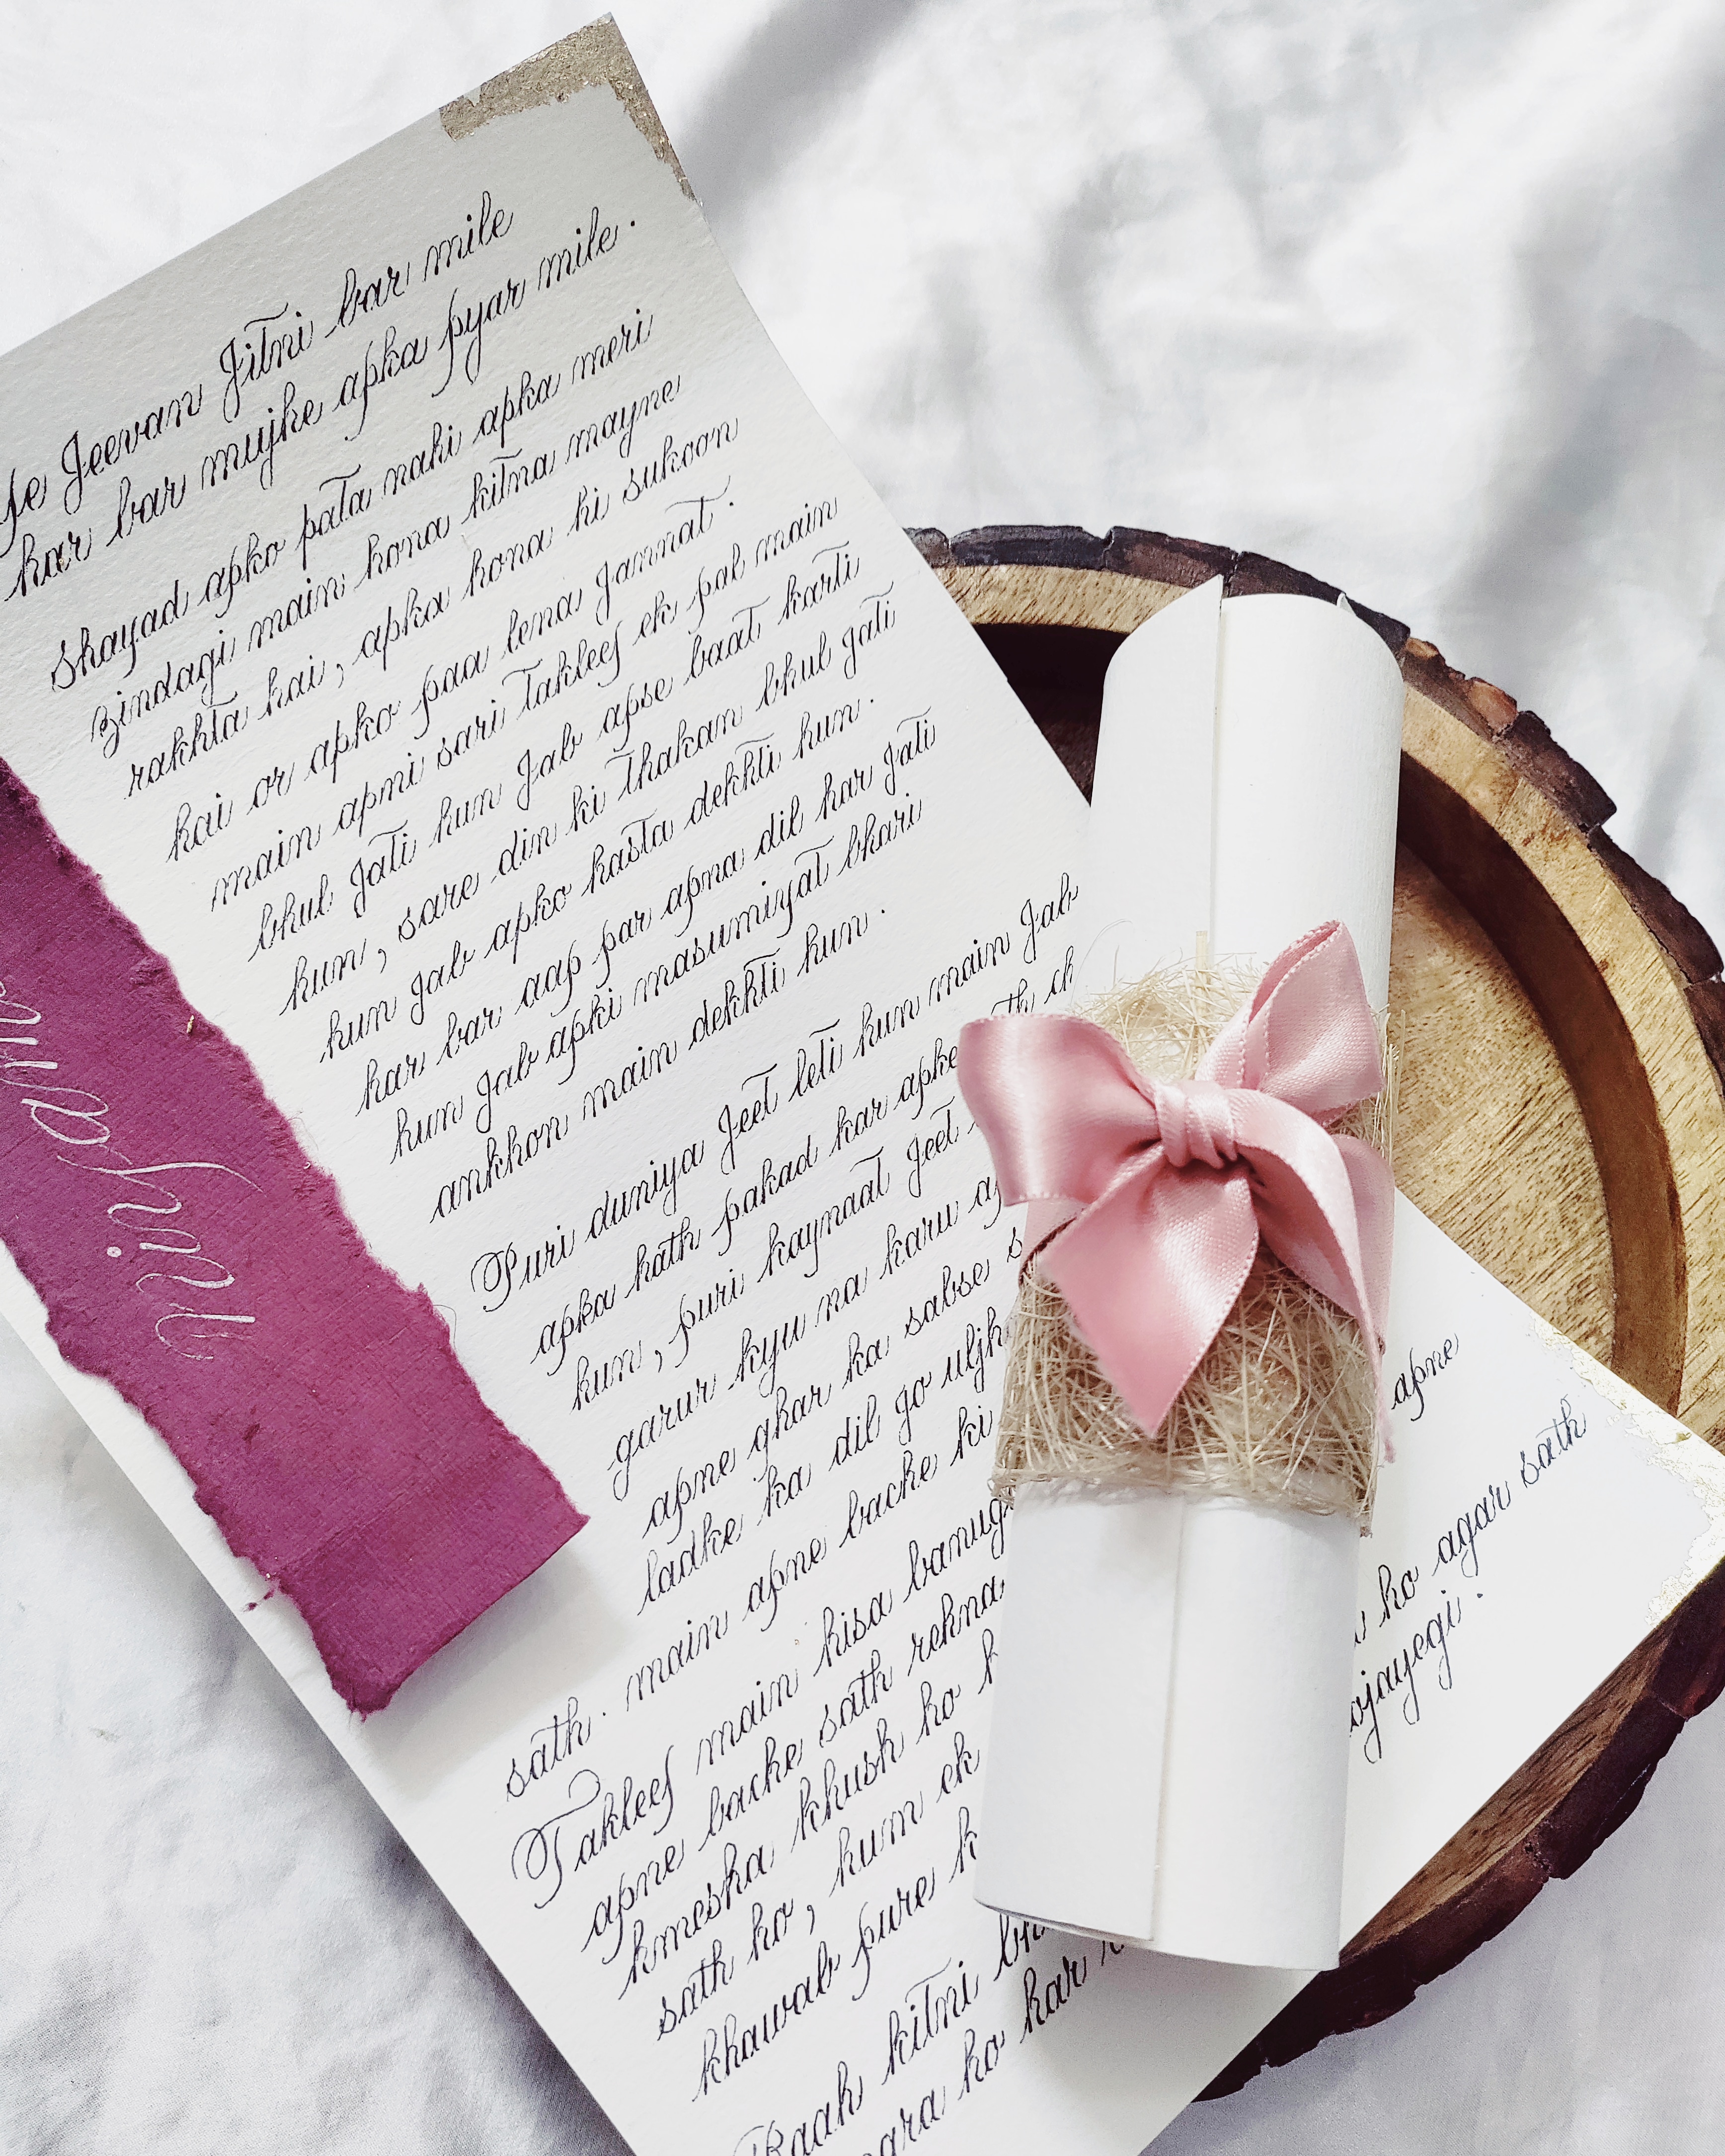 Ye Jeevan Jitni bar mile
har bar mujhe apka pyar mile.
Shayad apko pata nahi apka meri
zindagi main hona kitna mayne
rakhta hai, apka hona hi sukoon
hai or apko paa lena Jannat.
main apni sari takleef ek pal main
bhul Jati hun Jab apse baat karti
hun, sare din ki thakan bhul Jati
hun Jab apko hasta dekhti hun.
har bar aap par apna dil har Jati
hun Jab apki masumiyat bhari
ankhon main dekhti hun.
Puri duniya Jeet leti hun main Jab
apka hath pakad kar apke
hun, puri kaynaat Jeet
garur kyu na karu
apne ghar ka sabse
ladke ka dil Jo
main apne bache ki
sath.
Takleef main hisa
apne bache sath rehna,
hmesha khush ho
sath ho, hum ek
khawab pure
Raah kitni
ho har
apne
ho agar sath